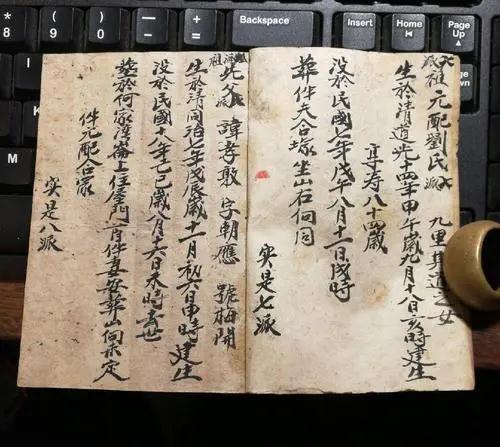 *
8
(
9
)
0
Backspace
Insert
Home
Page
Up
End
Page
祖元配劉氏 九里其道之女
生於清道光十四年甲午歲九月十八日亥時建生
享寿八十四歲
没於民國七年戊午八月十一日戌時
葬伴夫合塚坐山石向同
实是七派
祖父 諱孝敦 字朝應 號梅開
生於清同治七年戊辰歲十一月初六日申時建生
没於民國十八年己巳歲八月十六日未時去世
葬於何家湾上往屋門首伴妻安葬山向未定
伴元配合冢
实是八派